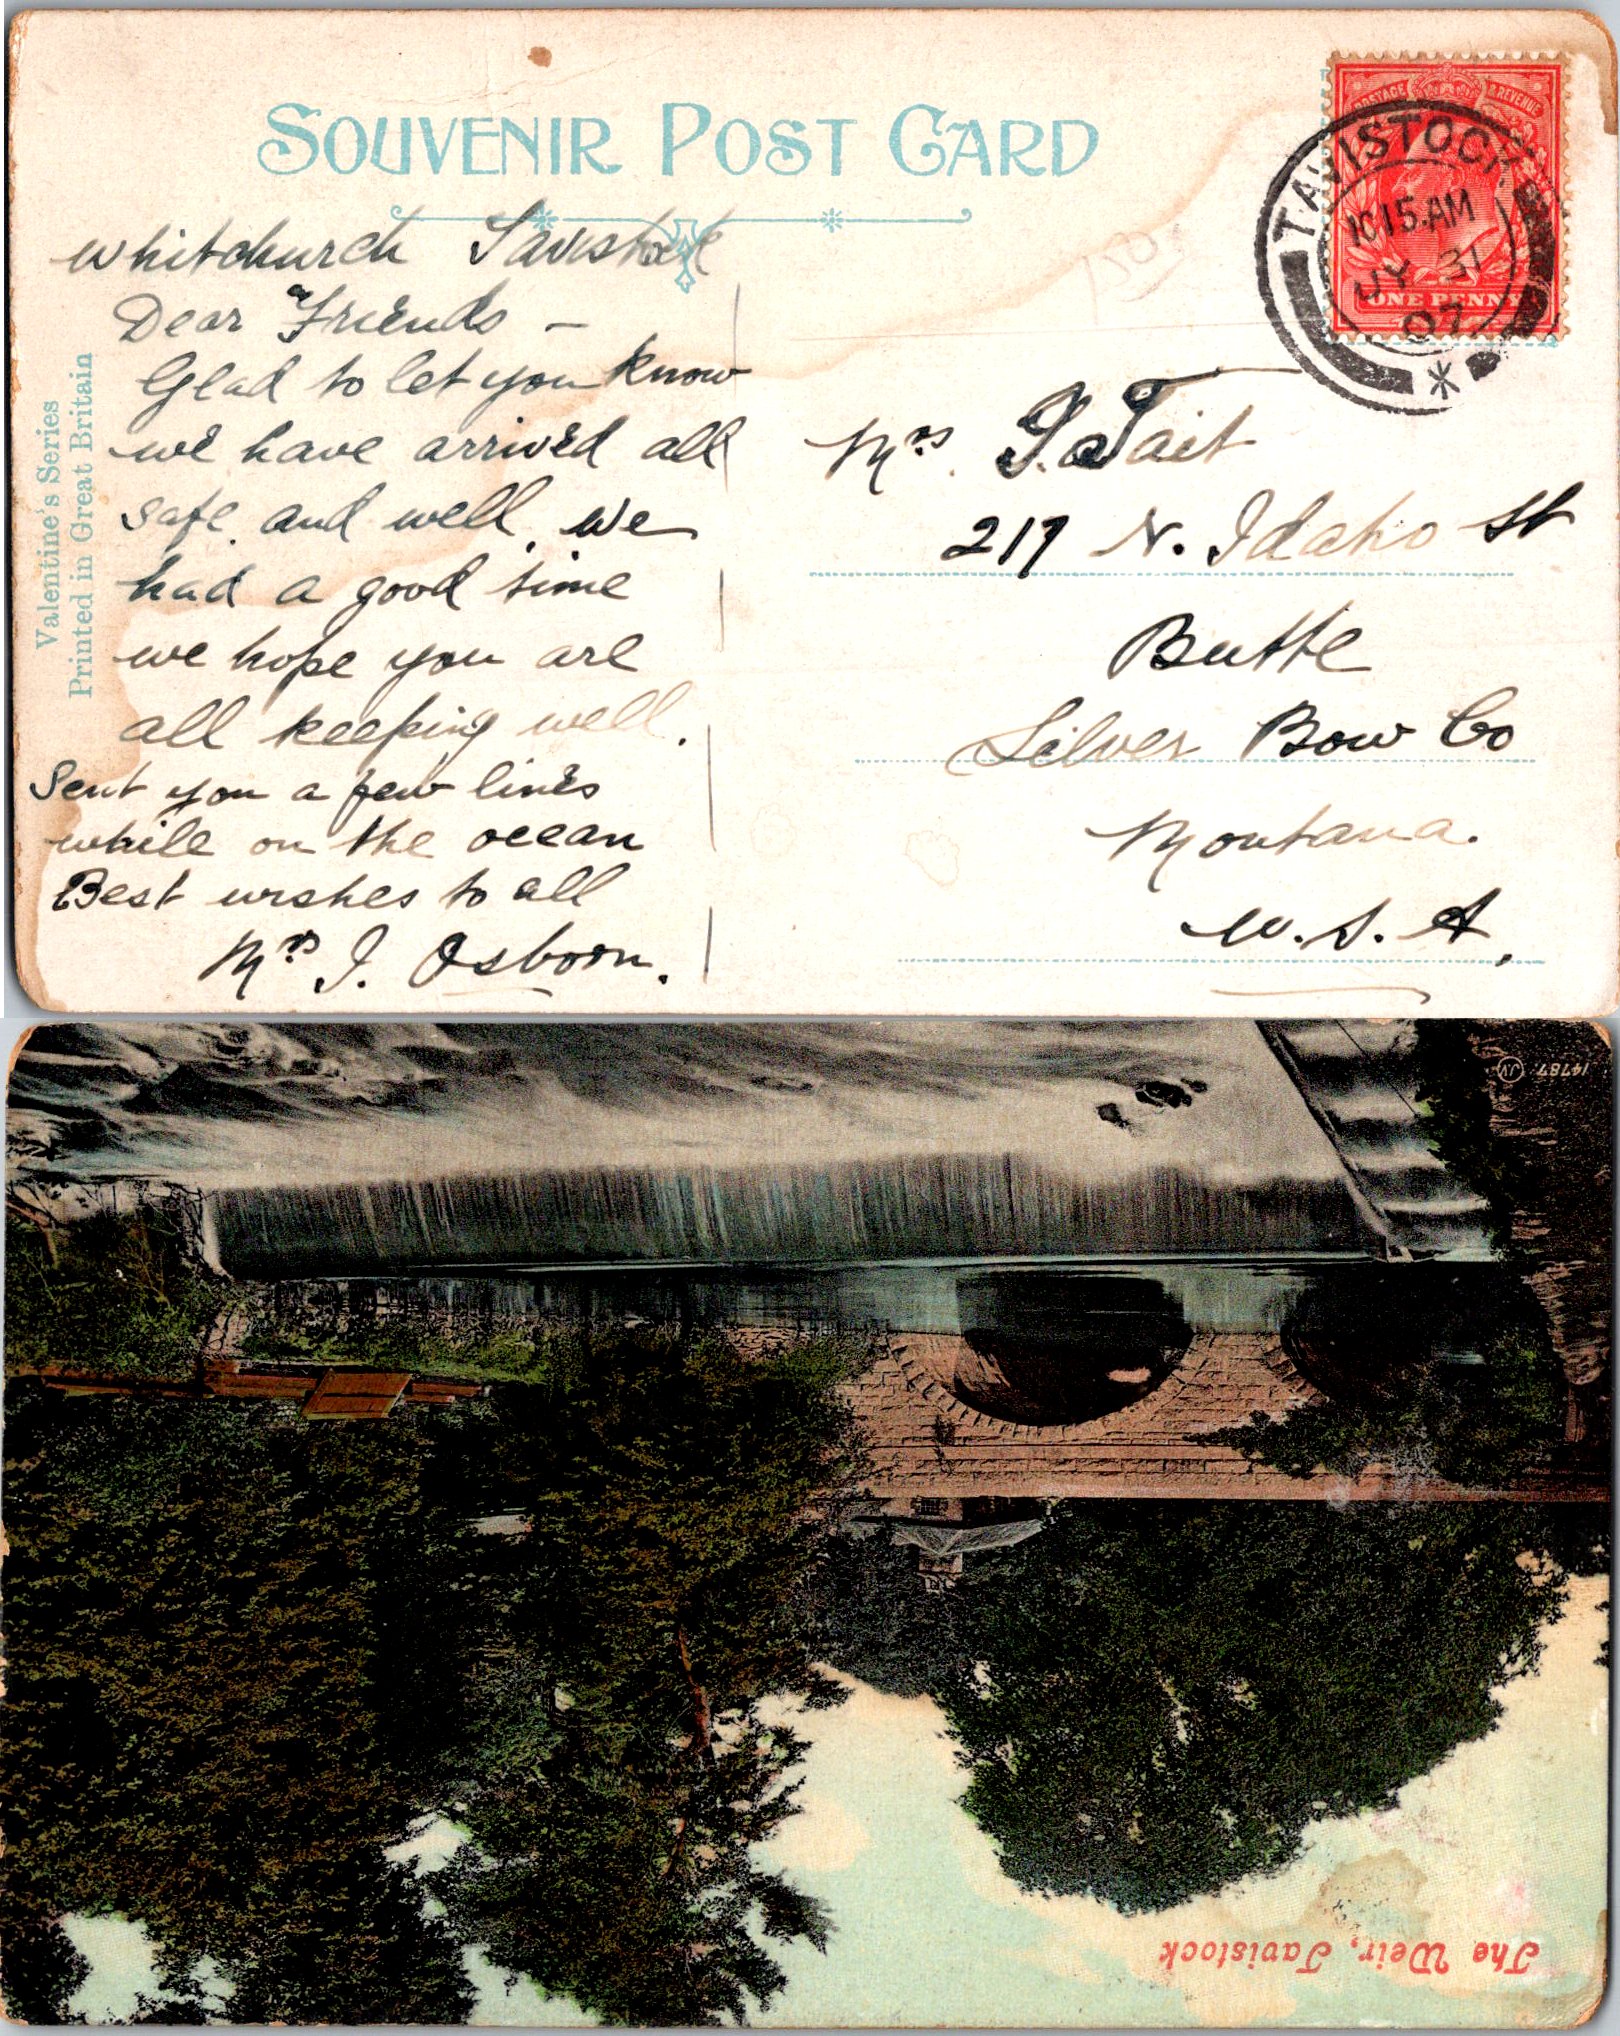 SOUVENIR POST CARD
POSTAGE & REVENUE
ONE PENNY
TAVISTOCK
10 15.AM
JY 31
07
Valentine's Series
Printed in Great Britain
Whitchurch Tavistock
Dear Friends -
Glad to let you know
we have arrived all
safe. and well. we
had a good time
we hope you are
all keeping well.
Sent you a few lines
while on the ocean
Best wishes to all
Mrs J. Osborn.
Mrs. J. Tait
217 N. Idaho St
Butte
Silver Bow Co
Montana.
U.S.A.
14787 JV
The Weir, Tavistock